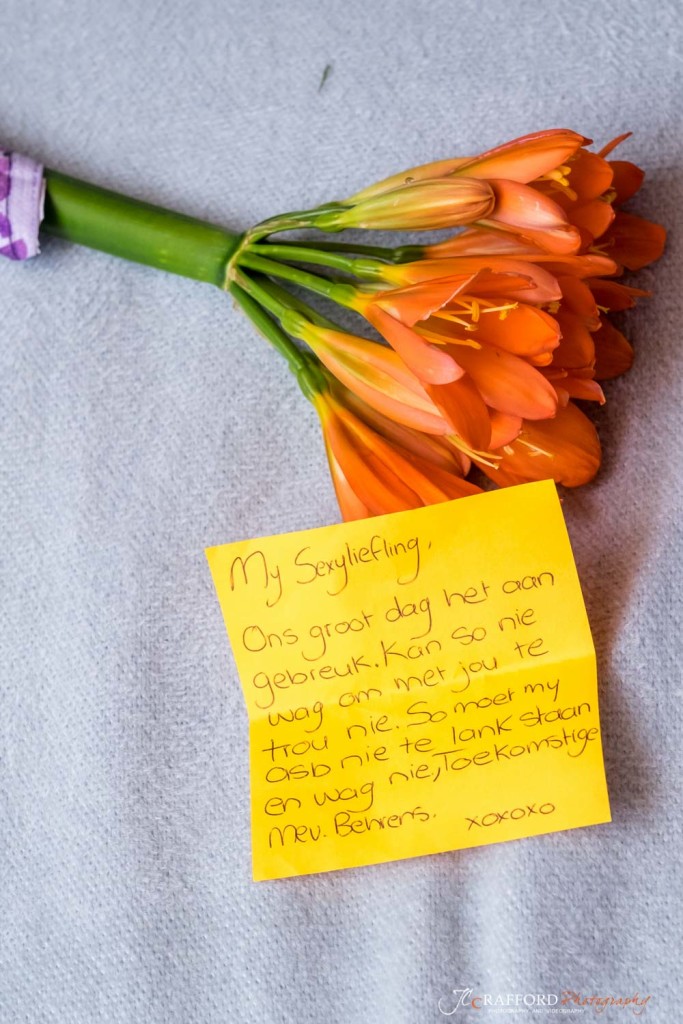 My Sexyliefling,
Ons groot dag het aan
gebreuk. Kan so nie
wag om met jou te
trou nie. So moet my
asb nie te lank staan
en wag nie, Toekomstige
Mev. Behrens. xoxoxo
JC CRAFFORD Photography
PHOTOGRAPHY AND VIDEOGRAPHY